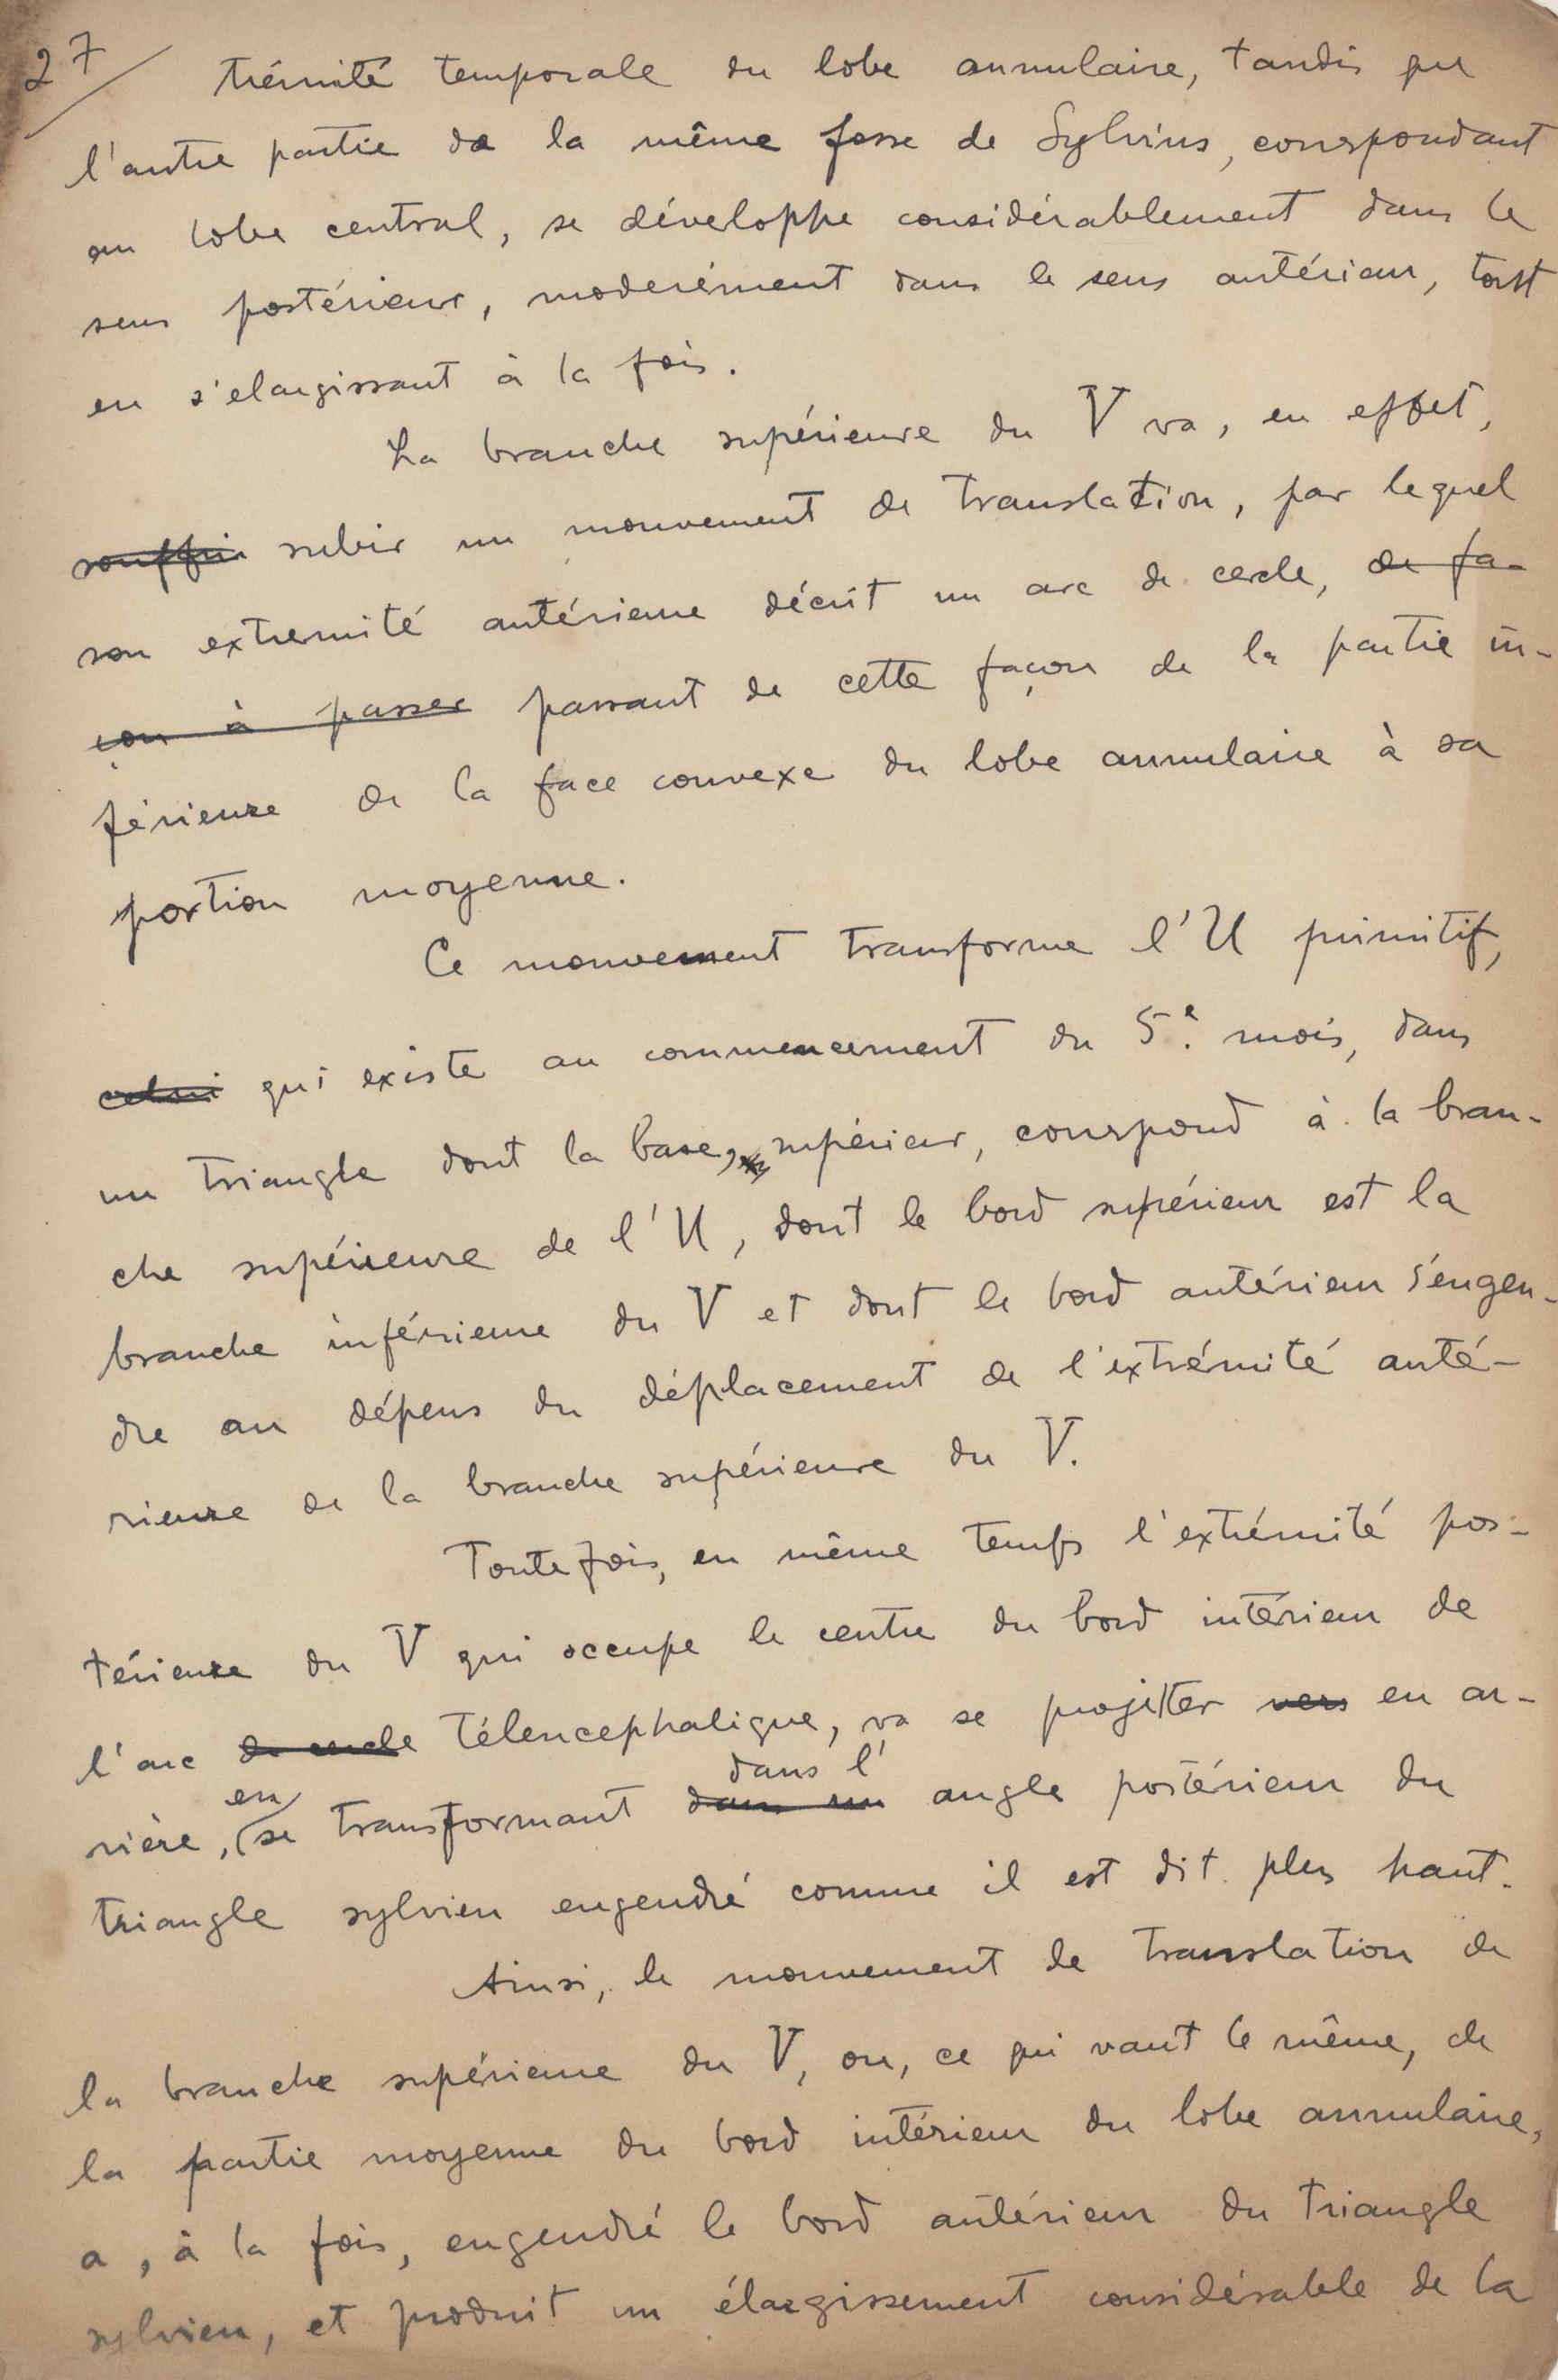 27
trémité temporale du lobe annulaire, tandis que
l'autre partie de la même fosse de Sylvius, correspondant
au lobe central, se développe considérablement dans le
sens postérieur, moderément dans le sens antérieur, tout
en s'elargissant à la fois.
La branche supérieure du V va, en effet,
souffrir subir un mouvement de translation, par lequel
son extremité antérieure décrit un arc de cercle, de fa-
çon à passer passant de cette façon de la partie in-
férieure de la face convexe du lobe annulaire à sa
portion moyenne.
Ce mouvement transforme l'U primitif,
celui qui existe au commencement du 5e mois, dans
un triangle dont la base, supérieur, correspond à la bran-
che supérieure de l'U, dont le bord supérieur est la
branche inférieure du V et dont le bord antérieur s'engen-
dre au dépens du déplacement de l'extrémité anté-
rieure de la branche supérieure du V.
Toutefois, en même temps l'extrémité pos-
térieure du V qui occupe le centre du bord intérieur de
l'arc de cercle télencephalique, va se projetter vers en ar-
rière, en se transformant dans un dans l'angle postérieur du
triangle sylvien engendré comme il est dit plus haut.
Ainsi, le mouvement de translation de
la branche supérieure du V, ou, ce qui vaut le même, de
la partie moyenne du bord intérieur du lobe annulaire,
a, à la fois, engendré le bord antérieur du triangle
sylvien, et produit un élargissement considérable de la